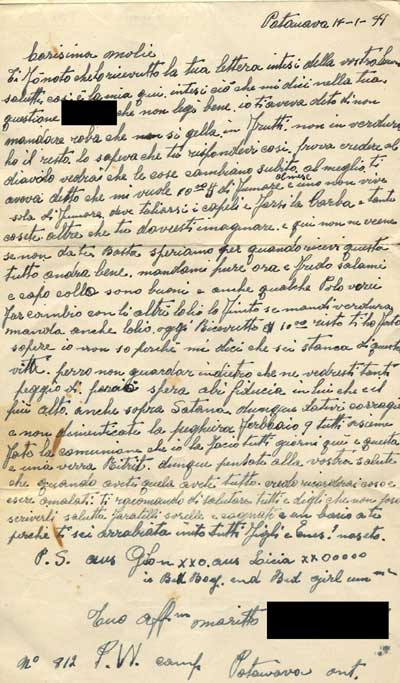 Patawava 14-1-41
Carisima molie
Ti Fonoto che lo ricevutto la tua lettera intesi della vostra buona
salutti, cosi è la mia qui. intesi ciò che mi dici nella tua
questione che non legi bene. io ti aveva deto di non
mandare roba che non si gella. in Frutti. non in verdura
ho il resto. lo sapeva che tu rispondevi cosi, prova credere al
diavolo vedrai che le cose cambiano subito. al meglio, ti
aveva detto che mi vuole 10 di fumare e uno non vive
sola di fumare, deve taliarsi i capeli e farsi la barba e tante
cosete altre che tu dovresti imagnare. e qui non ne viene
se non da te. Basta speriamo per quando ricevi questa
tutto andra bene. mandami pure ora e Fredo salami
e capo collo sono buoni e anche qualche Polo verii
Far cambio con li altri lolio lo Finito se mandi verdura
manda anche lolio, oggi Ricevutto $ 10.00 resto ti ho fatto
sopere io non so perchè mi dici che sei stanca di questa
vitta. perro non guardar indietro che ne vedresti tanti
peggio di spera abi fiducia in lui che è il
più alto. anche sopra Satana. dunque datevi corraggio
e non dimenticate la peghiera Ferbraio 9 tutti insieme
fate la comunione che io la facio tutti giorni qui e questa
e una verra dunque pensate alla vostra salute
che quando aveti quela avete tutto. credo ricorderai cose e
esere amalati. ti racomando di salutare tutti e degli che non poso
scriverli salutta Faratelli sorelle e cognate e un bacio a te
perche ti sei arrabiata unito tutti Figli e
P.S. aus Gion xxo. aus Loicia xx00000
is Bed Boy. end Bed girl
Tuo aff.mo maritto
N° 912 P.W. camp Patawava ont.